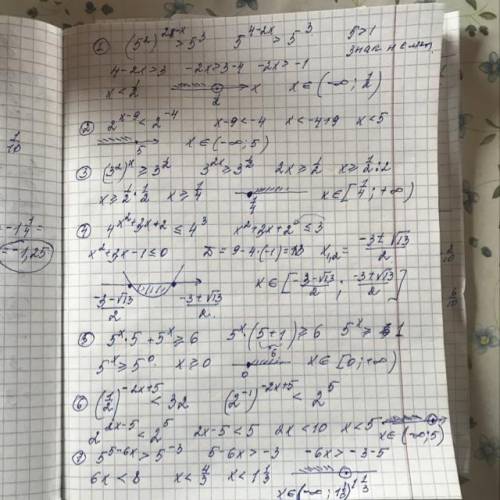 ① (5²)^(2-x) > 5³   5^(4-2x) > 5³   5>1
4-2x>3   -2x>3-4   -2x>-1   знак не мен.
x<1/2   1/2   x   x∈(-∞; 1/2)
② 2^(x-9) < 2^(-4)   x-9<-4   x<-4+9   x<5
5   x∈(-∞; 5)
③ (3²)^x ≥ 3^(1/2)   3^(2x) ≥ 3^(1/2)   2x≥1/2   x≥1/2:2
x≥1/2·1/2   x≥1/4   1/4   x∈[1/4; +∞)
④ 4^(x²+3x+2) ≤ 4³   x²+3x+2≤3
x²+3x-1≤0   D=9-4·(-1)=13   x₁,₂ = (-3±√13)/2
(-3-√13)/2   (-3+√13)/2   x∈[(-3-√13)/2; (-3+√13)/2]
⑤ 5^x·5+5^x≥6   5^x(5+1)≥6   5^x≥1
6
5^x≥5⁰   x≥0   0   x∈[0;+∞)
⑥ (1/2)^(-2x+5) < 32   (2^(-1))^(-2x+5) < 2⁵
2^(2x-5) < 2⁵   2x-5<5   2x<10   x<5   x∈(-∞;5)
⑦ 5^(5-6x) > 5^(-3)   5-6x>-3   -6x>-3-5
6x<8   x<4/3   x<1 1/3   1 1/3
x∈(-∞; 1 1/3)
1/10
-1 1/4 =
= -1,25